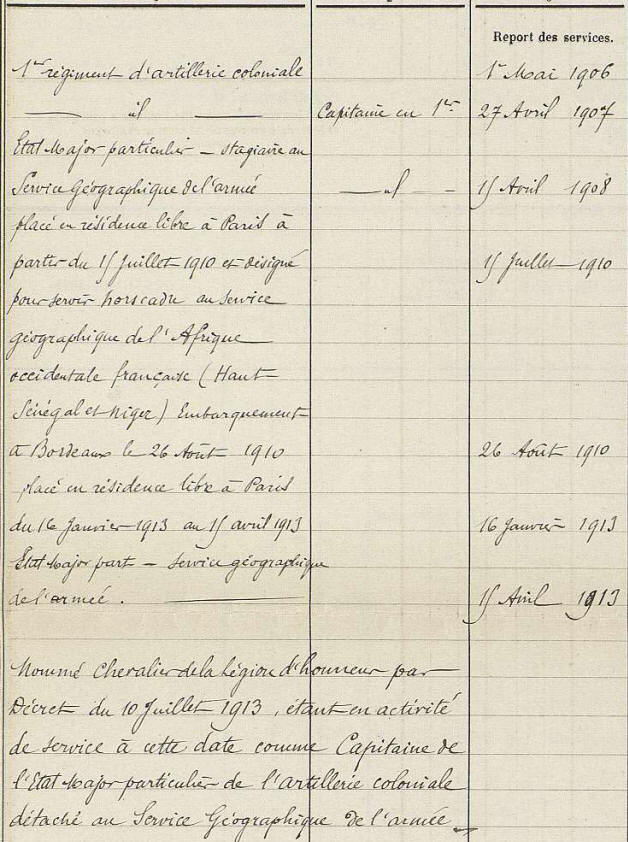 Report des services.
1er régiment d'artillerie coloniale 1er Mai 1906
— id — Capitaine en 1er 27 Avril 1907
Etat Major particulier — stagiaire au
Service Géographique de l'armée — id — 15 Avril 1908
placé en résidence libre à Paris à
partir du 15 Juillet 1910 et désigné 15 Juillet 1910
pour servir hors cadre au service
géographique de l'Afrique
occidentale française (Haut
Sénégal et Niger) Embarquement
à Bordeaux le 26 Août 1910 26 Août 1910
placé en résidence libre à Paris
du 16 Janvier 1913 au 15 avril 1913 16 Janvier 1913
Etat Major part — service géographique
de l'armée. — 15 Avril 1913
Nommé Chevalier de la Légion d'honneur par
Décret du 10 Juillet 1913, étant en activité
de service à cette date comme Capitaine de
l'Etat Major particulier de l'artillerie coloniale
détaché au Service Géographique de l'armée